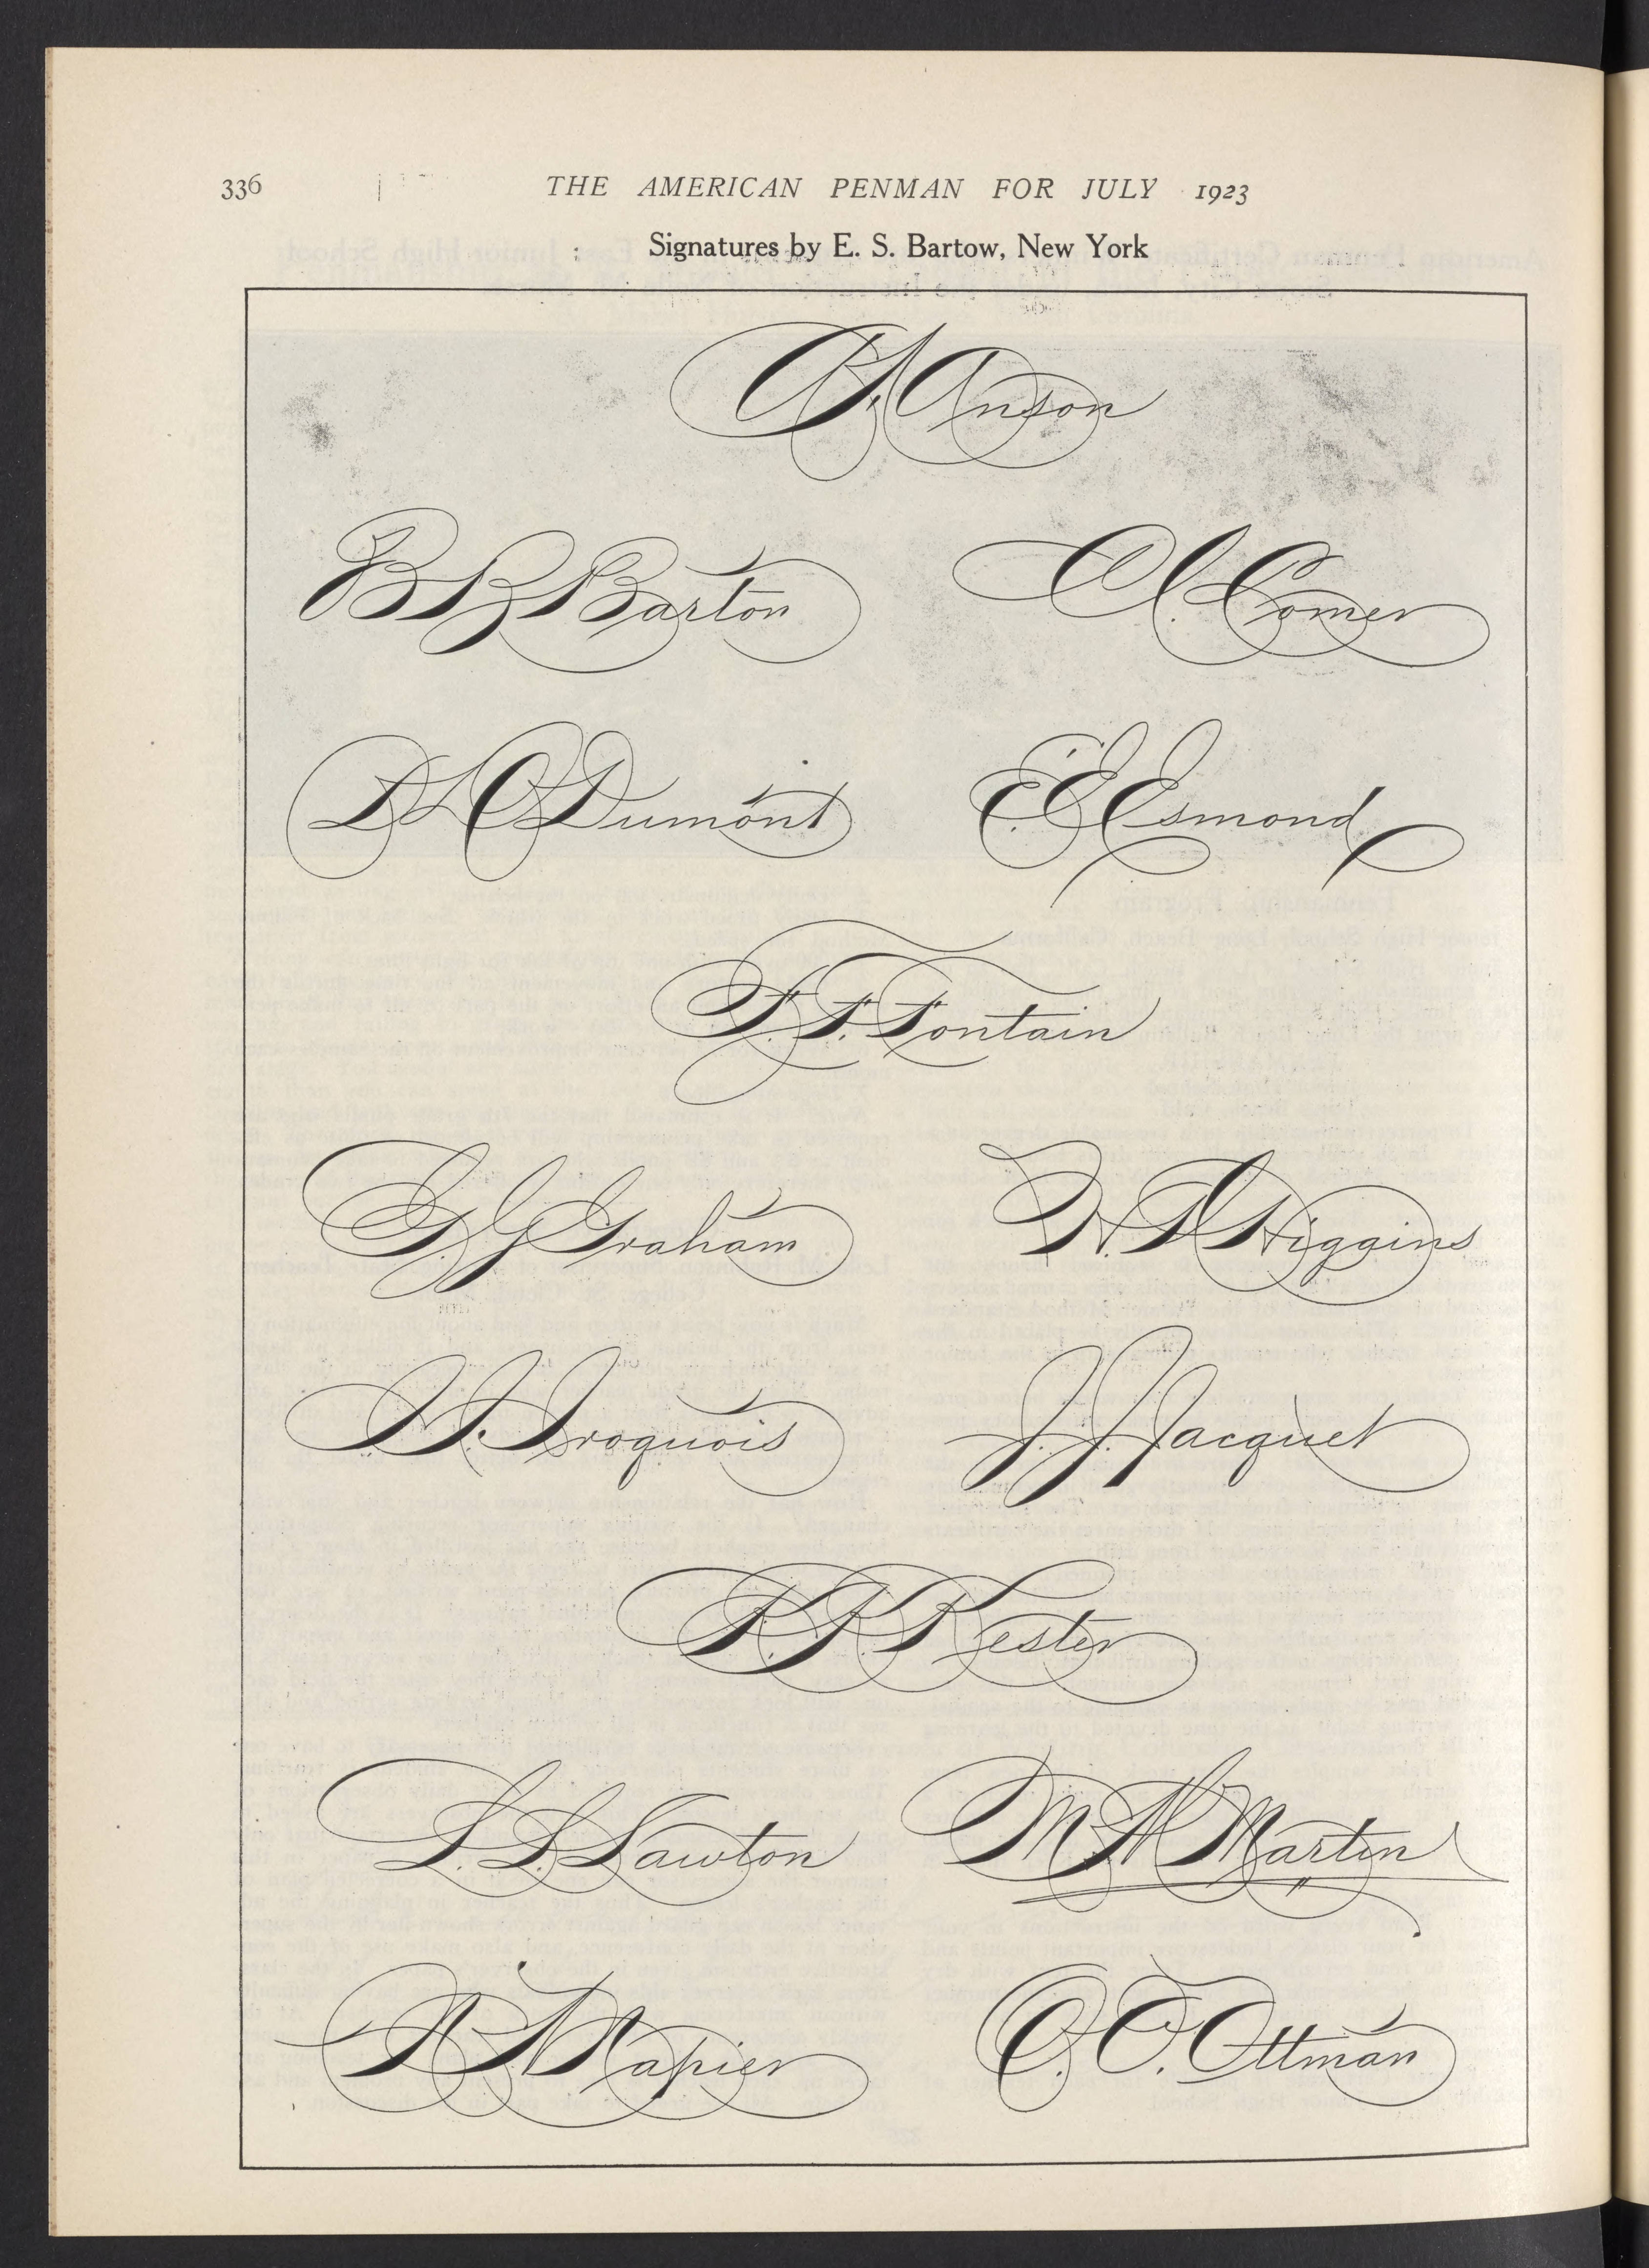 336
THE AMERICAN PENMAN FOR JULY 1923
Signatures by E. S. Bartow, New York
A. A. Anson
B B Barton
C. C. Comer
D D Dumont
E. E Esmond
F. F. Fontain
G. G Graham
H. H Higgins
I. I. Iroquois
J. J. Jacquet
K. K. Kester
L. L. Lawton
M M Martin
N N Napier
O. O. Ottman